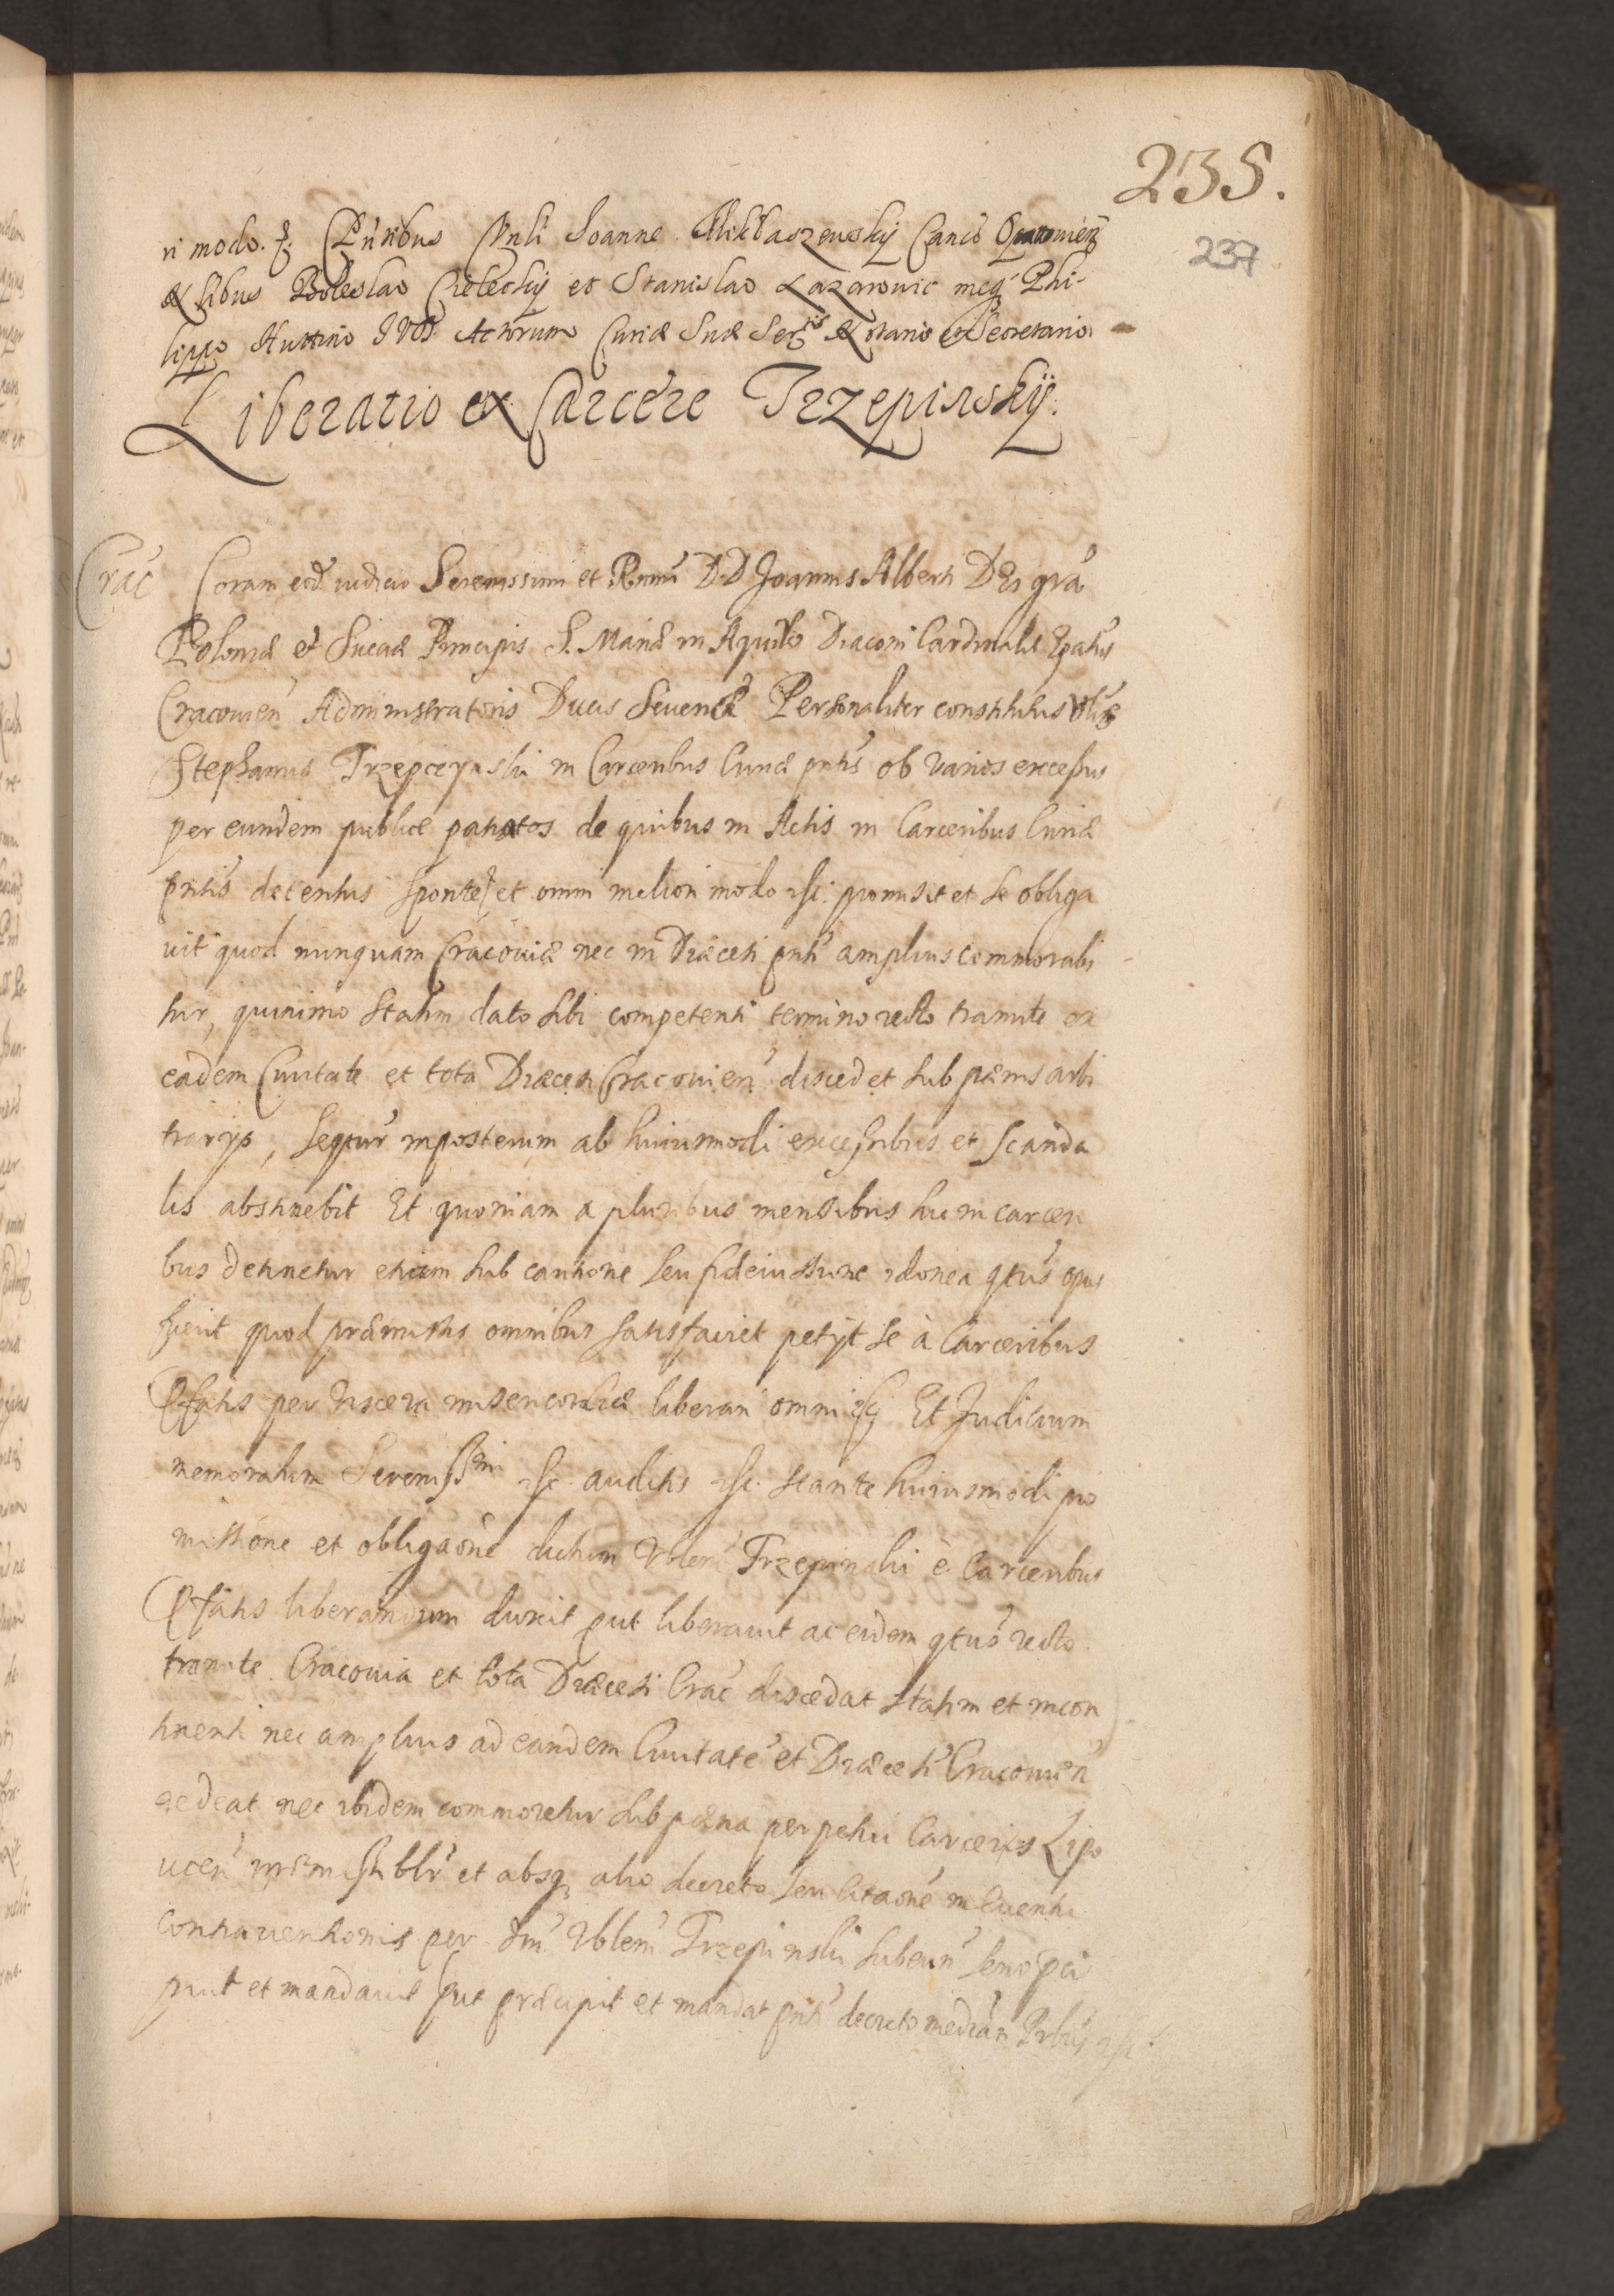 235.
237
ri modo. &. Pntibus Vnli Joanne Miklaszewskij Canco
Nlibus Boleslao Cieleckij et Stanislao Lazarowic meq Phi-
lippo Huttino IVD Actorum Curiæ Suæ Sertis Notario et Secretario
Liberatio ex Carcere Trzepinskÿ.
Crac Coram eod iudicio Serenissimi et Rmi D.D Joannis Alberti DEi gra
Poloniæ et Sueciæ Principis S. Mariæ in Aquiro Diaconi Cardinalis Epatus
Cracouien Administratoris Ducis Seueriæ Personaliter constitutus
Stephanus in Carceribus Curiæ pntis ob varios excessus
per eundem publice patratos de quibus in Actis in Carceribus Curiæ
pntis detentus sponte et omni meliori modo promisit et se obliga
uit quod nunquam Cracouiæ nec in Diæcesi pnti amplius commorabi
tur, quinimo statim dato sibi competenti termino recto tramite ex
eadem Ciuitate et tota Diæcesi Cracouien discedet sub pænis arbi
trarys, seqtur inposterum ab huiusmodi excessibus et scanda
lis abstinebit Et quoniam a pluribus mensibus hic in carceri
bus detinetur etiam sub cautione seu fideiussione idonea qtus opus
fuerit quod præmissis omnibus satisfaciet petÿt se à Carceribus
Pfatis per viscera misericordiæ liberari omni Et Judicium
memoratum Sereniss​mi auditis stante huiusmodi pro
missione et obligaone dictum Vblem Trzepinski è Carceribus
Pfatis liberandum duxit put liberauit ac eidem qtus recto
tramite Cracouia et tota Diæcesi Crac discedat statim et incon
tinenti nec amplius ad eandem Ciuitate et Diæcesi Cracouien
redeat nec ibidem commoretur sub pæna perpetui Carceris Lipo
uicen irremissiblr et absq alio decreto seu citaone in euentu
contrauentionis per dm Vblem Trzepinski subeun seuo pci
piuit et mandauit put præcipit et mandat pnti decreto median Pntibus